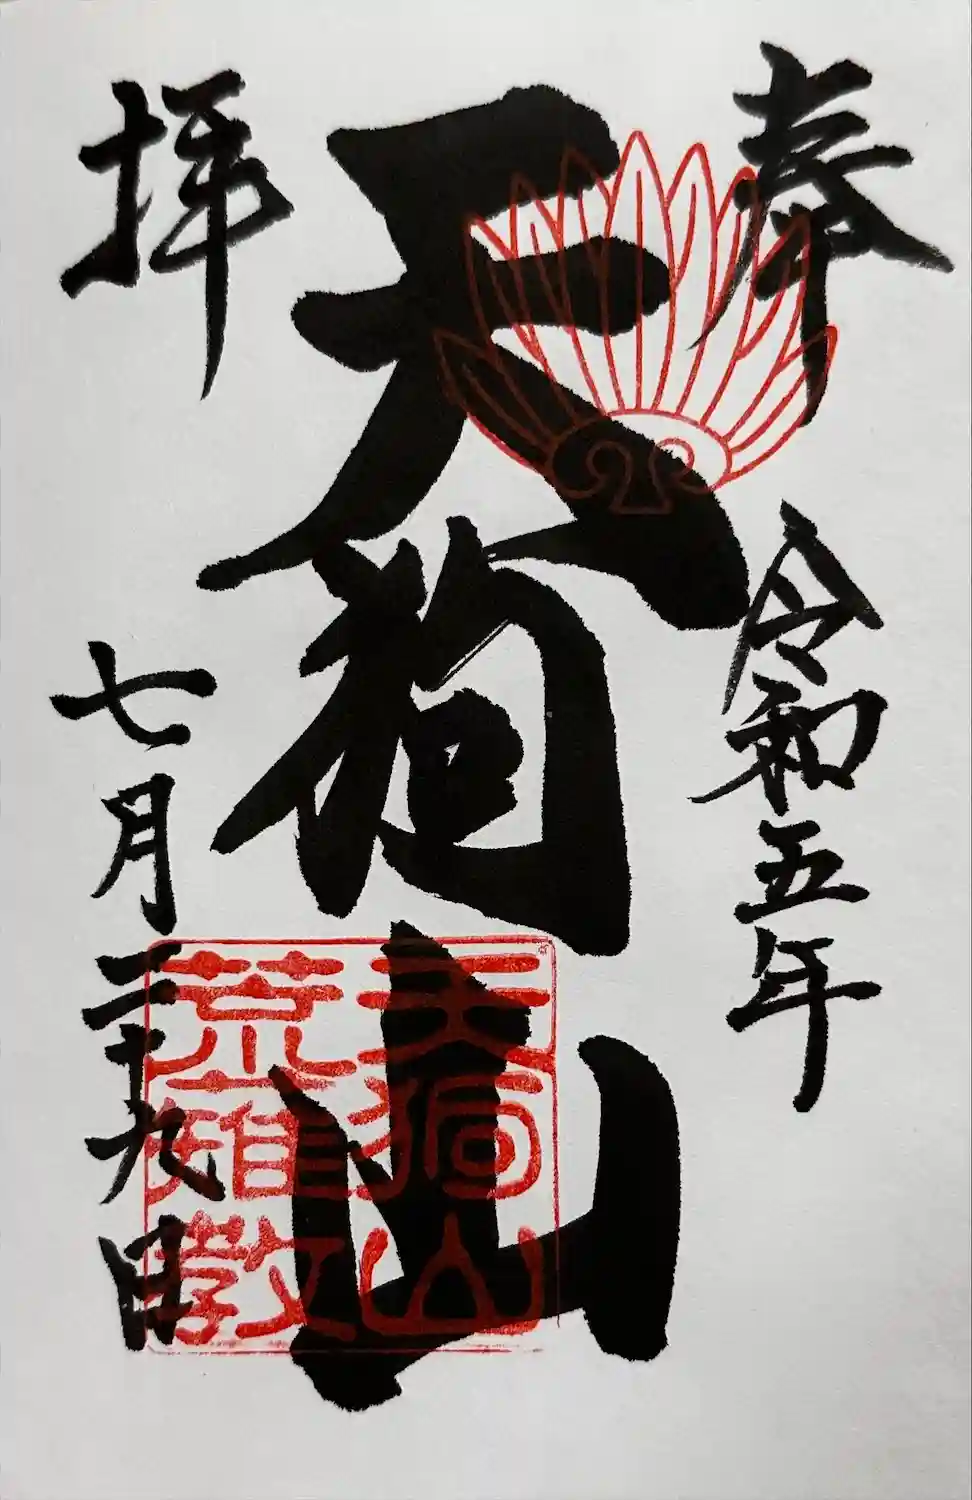 奉拝
天狗山
令和五年
七月二十九日
天狗山
荒薙教